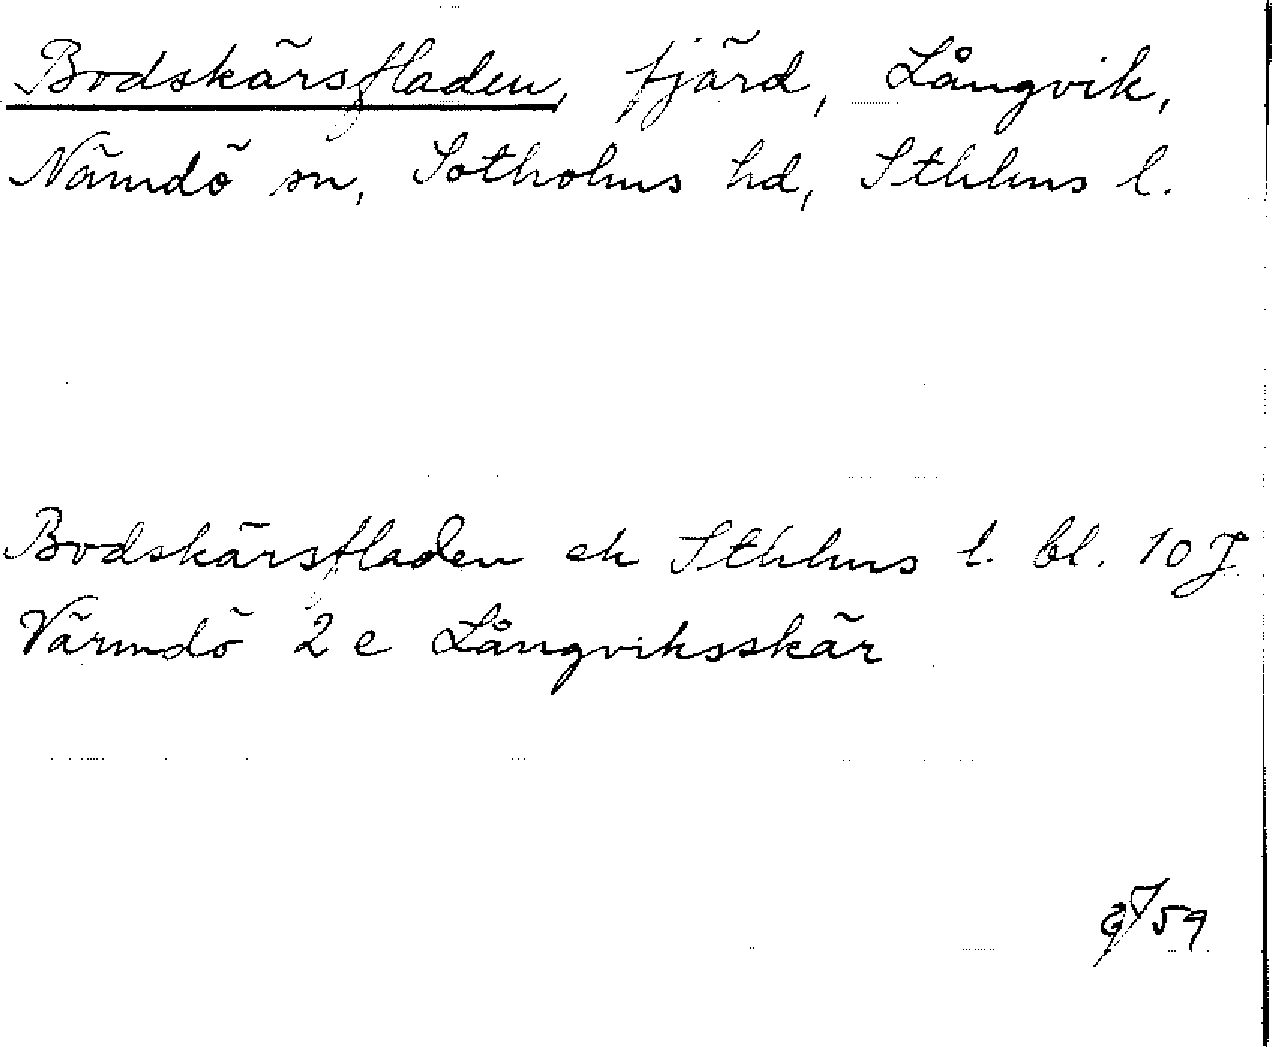 Bodskärsfladen, fjärd, Långvik,
Nämdö sn, Sotholms hd, Sthlms l.
Bodskärsfladen ek Sthlms l. bl. 10 J
Värmdö 2 e Långviksskär
59